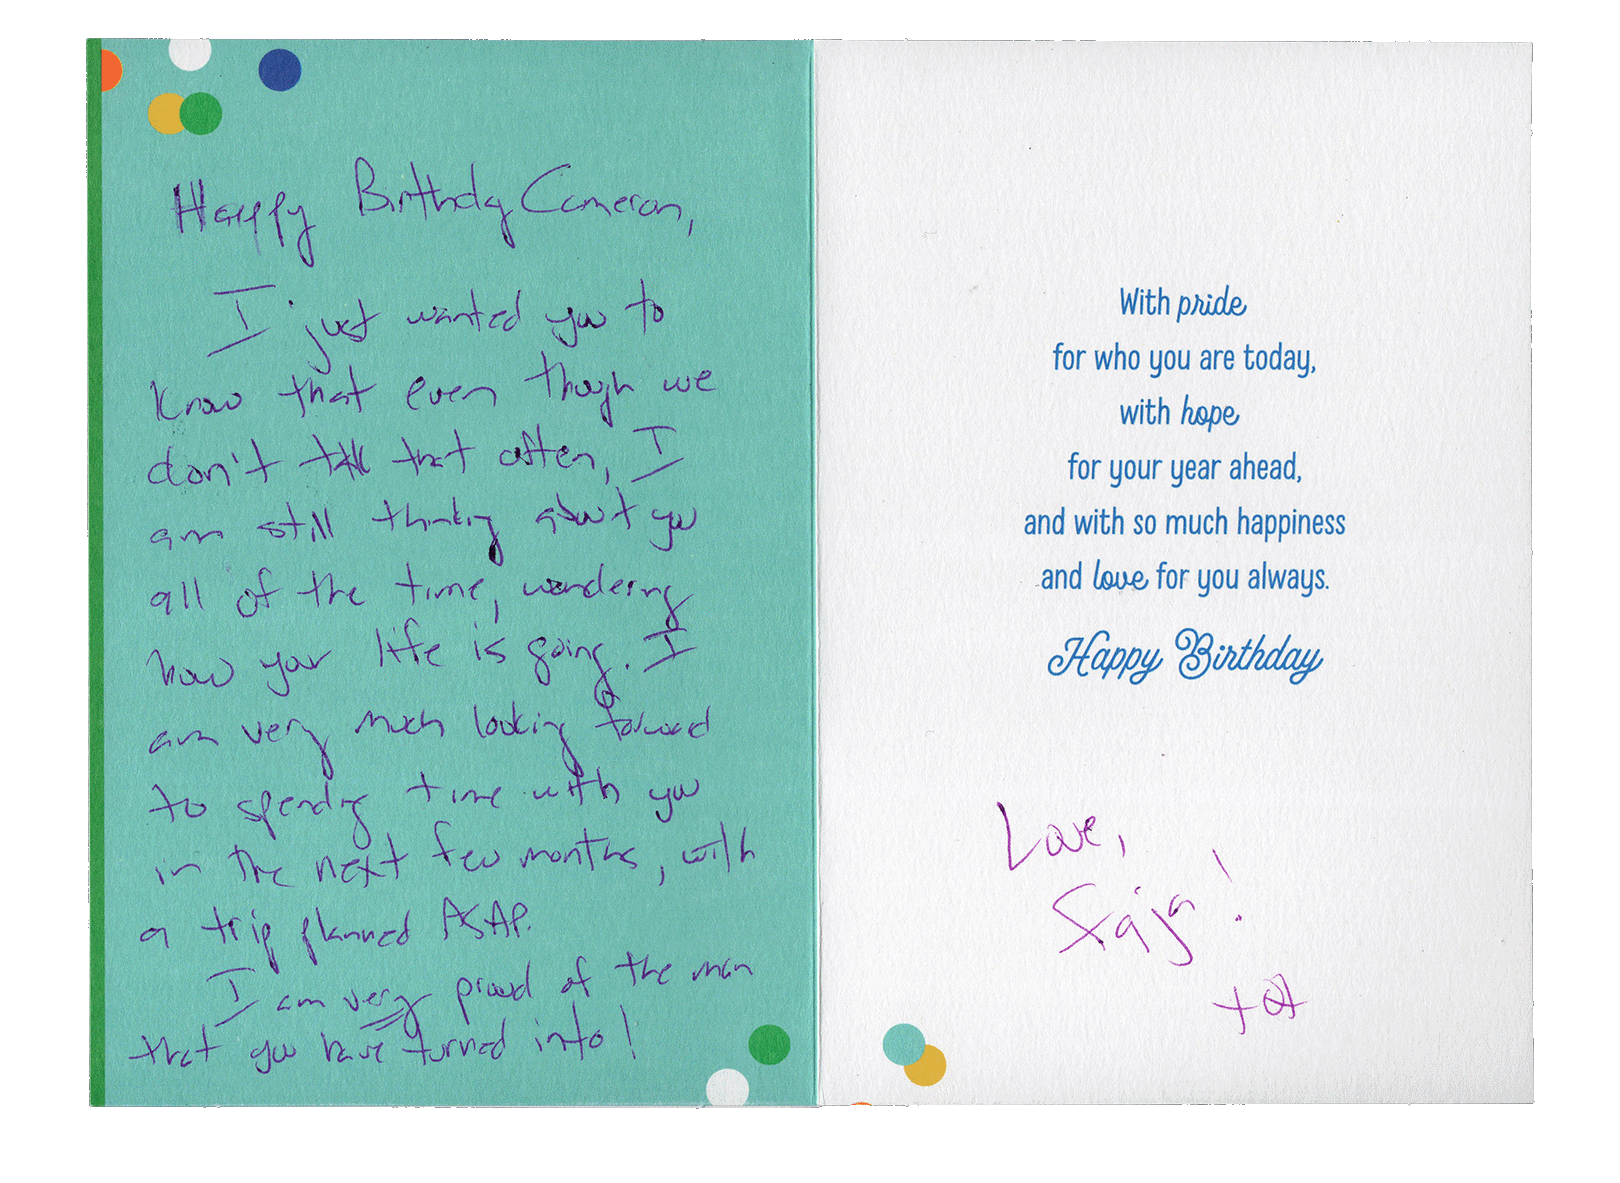 Happy Birthday Cameron,
I just wanted you to
know that even though we
don't talk that often, I
am still thinking about you
all of the time, wondering
how your life is going. I
am very much looking forward
to spending time with you
in the next few months, with
a trip planned ASAP.
I am very proud of the man
that you have turned into!
With pride
for who you are today,
with hope
for your year ahead,
and with so much happiness
and love for you always.
Happy Birthday
Love,
xox